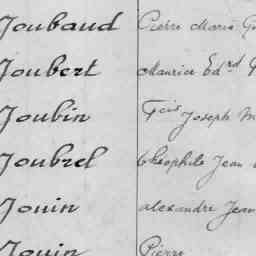 Joubaud Pierre Marie
Joubert Maurice Ed.rd
Joubin Fcis Joseph M
Joubrel théophile Jean
Jouin alexandre Jean
Jouin Pierre